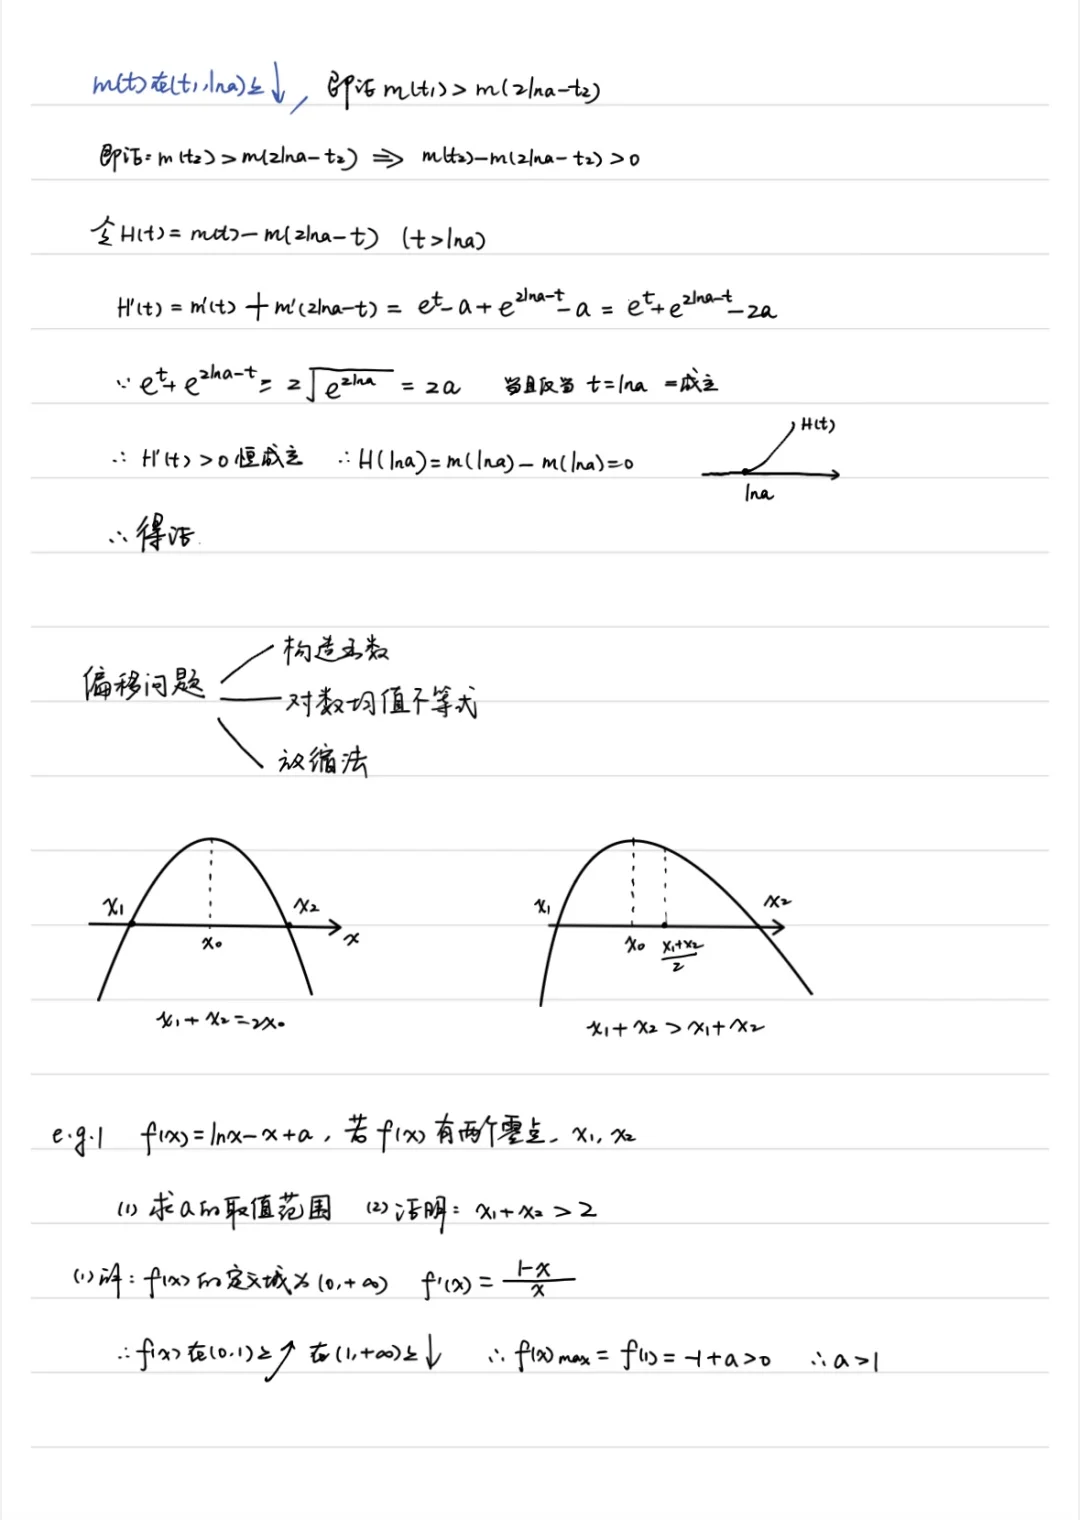 m(t)在(t₁,lna)上↓, 即证m(t₁)>m(2lna-t₂)
即证:m(t₂)>m(2lna-t₂) ⇒ m(t₂)-m(2lna-t₂)>0
令H(t)=m(t)-m(2lna-t) (t>lna)
H'(t)=m'(t)+m'(2lna-t)=e^t-a+e^{2lna-t}-a=e^t+e^{2lna-t}-2a
∵e^t+e^{2lna-t}=2√(e^{2lna})=2a 当且仅当 t=lna =成立
H(t)
∴ H'(t)>0恒成立 ∴H(lna)=m(lna)-m(lna)=0
lna
∴得证.
构造函数
偏移问题
对数均值不等式
放缩法
x₁ x₂ x₁ x₂
x₀ x x₀ (x₁+x₂)/2
x₁+x₂=2x₀ x₁+x₂>x₁+x₂
e.g.1 f(x)=lnx-x+a, 若f(x)有两个零点, x₁,x₂
(1)求a的取值范围 (2)证明: x₁+x₂>2
(1)解:f(x)的定义域为(0,+∞) f'(x)=(1-x)/x
∴f(x)在(0,1)上↗ 在(1,+∞)上↓ ∴f(x)max=f(1)=-1+a>0 ∴a>1